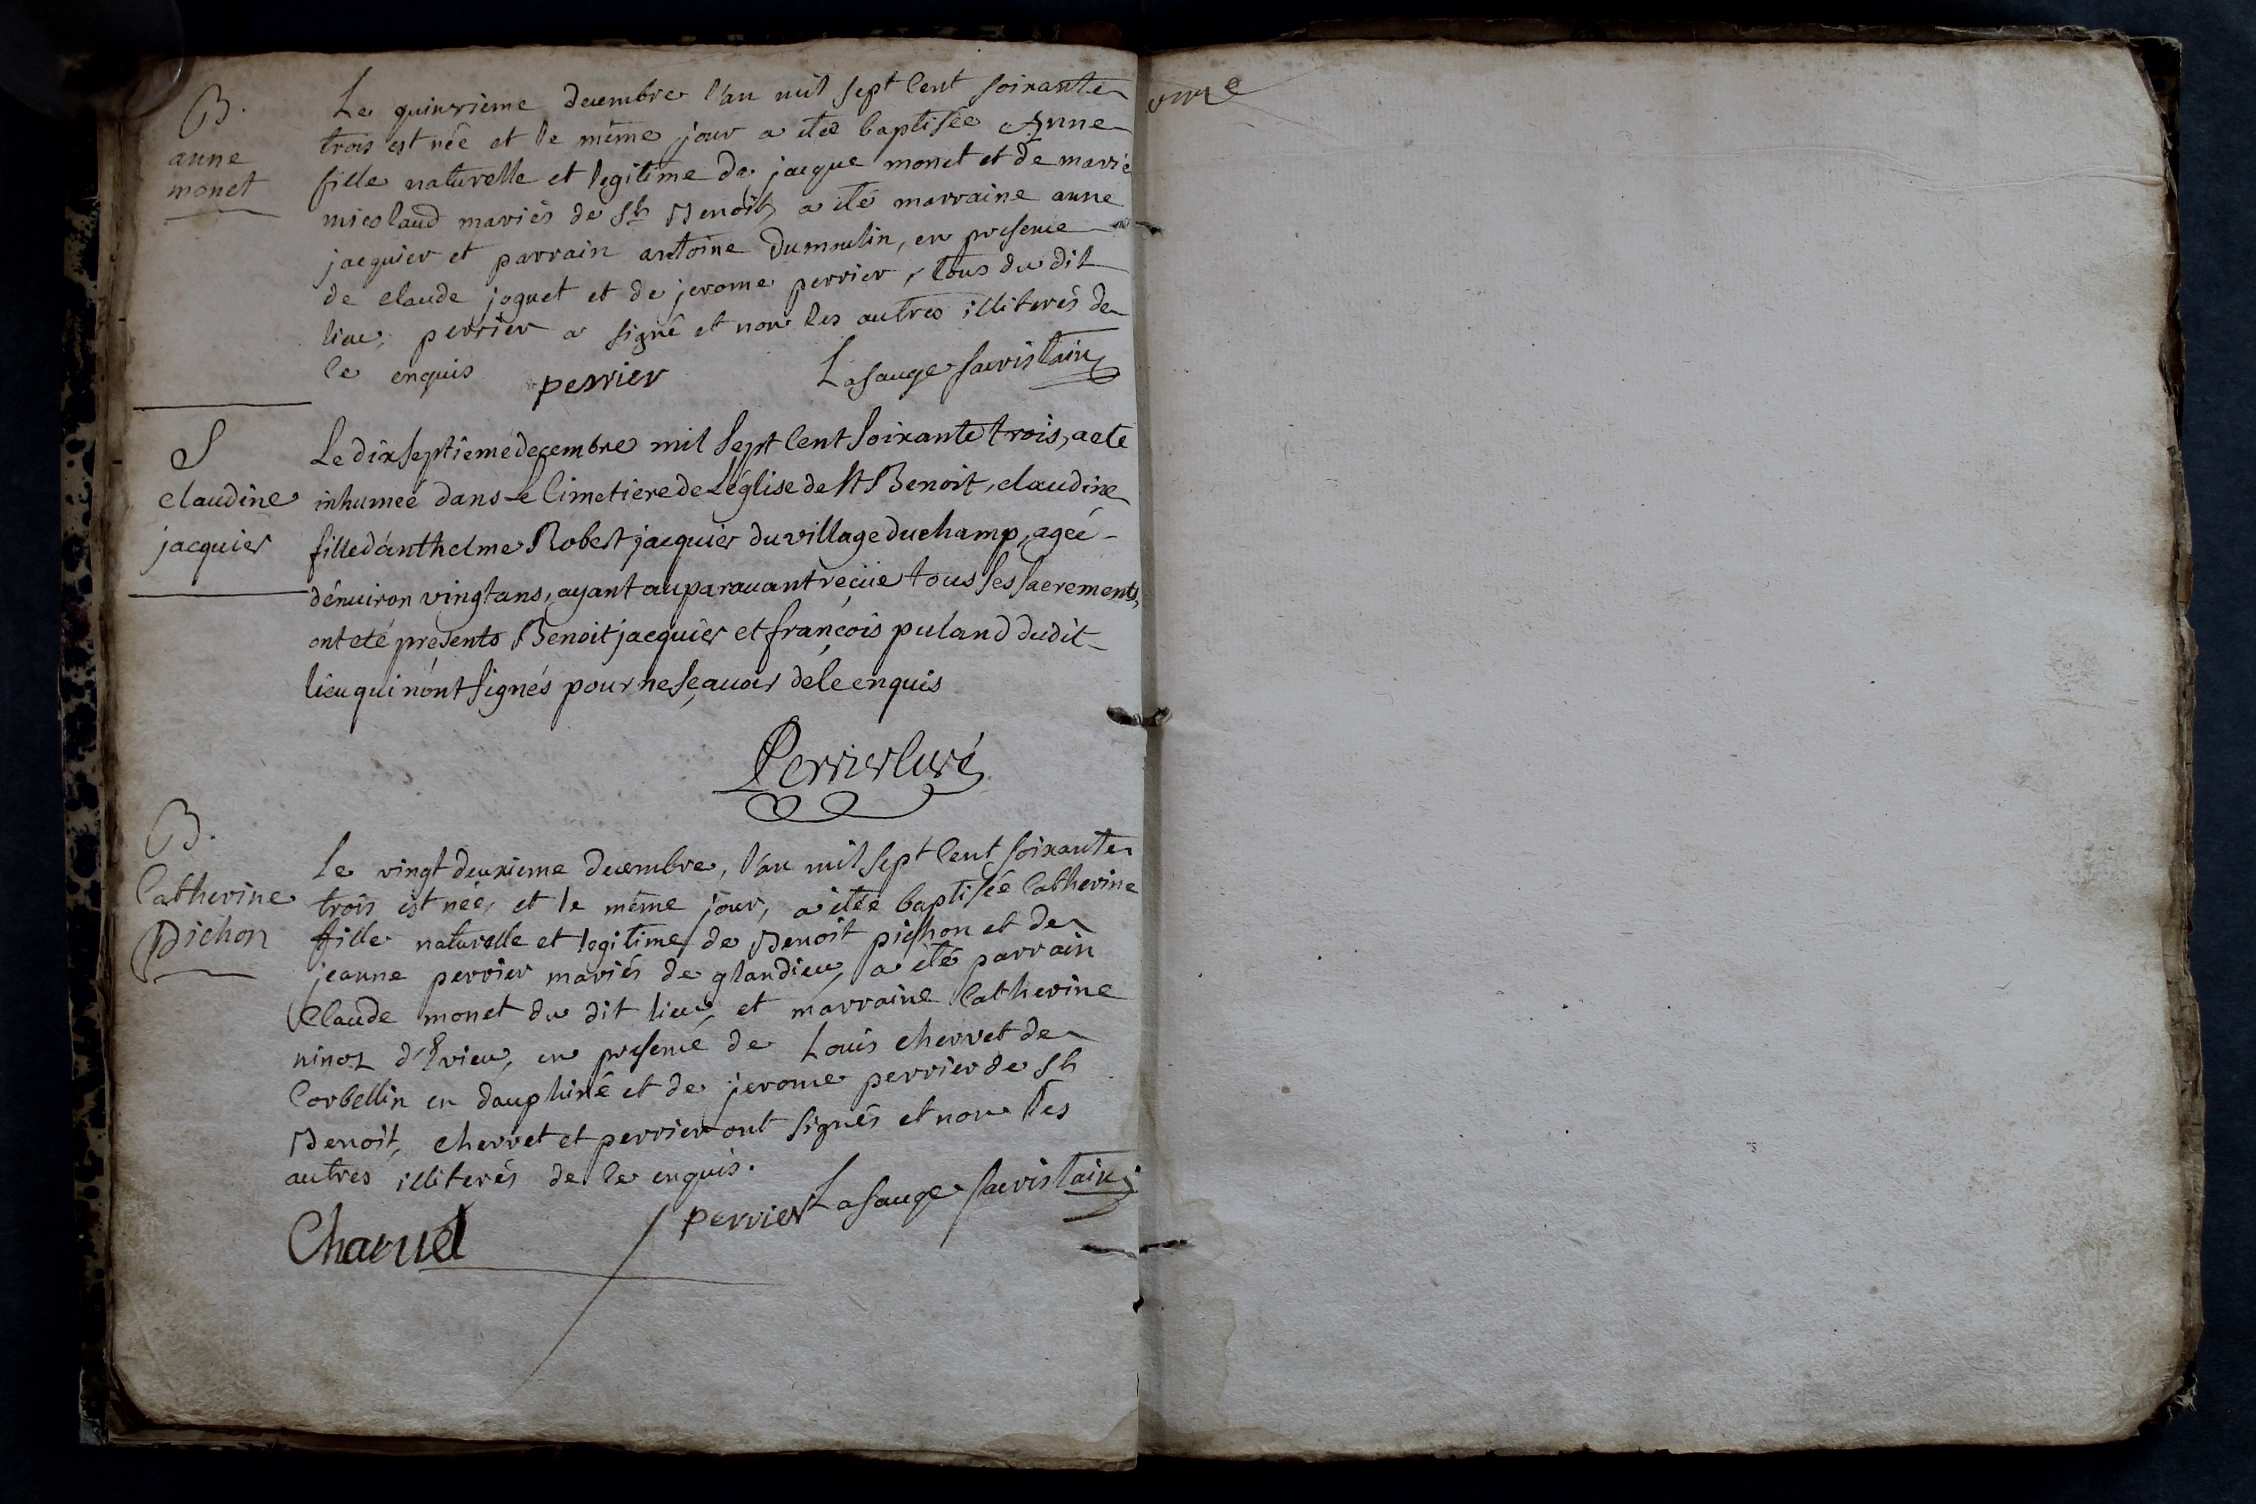 B.
anne
monet
Le quinzieme decembre l'an mil sept Cent soixante
trois est née et le même jour a été baptisée Anne
fille naturelle et legitime de jacque monet et de marie
micolaud mariés de St Benoit, a été marraine anne
jacquier et parrain antoine Dumoulin, en presence
de claude joguet et de jerome perrier, tous du dit
lieu, perrier a signé et non les autres illiterés de
ce enquis
perrier Lasauge sacristain
S
claudine
jacquier
Le dix septieme decembre mil sept Cent soixante trois, a eté
inhumeé dans Le Cimetiere de L'église de St Benoit, claudine
fille d'anthelme Robert jacquier du village du champ, ageé
d'enuiron vingt ans, ayant auparauant reçüe tous ses sacrements,
ont eté présents Benoit jacquier et françois puland dudit
lieu qui n'ont signés pour ne sçauoir de ce enquis
Perrier Curé
B.
Catherine
Pichon
Le vingt deuxieme decembre, l'an mil sept Cent soixante
trois est née, et le même jour, a été baptisée Catherine
fille naturelle et legitime de Benoit pichon et de
jeanne perrier mariés de glandieu, a été parrain
Claude monet du dit lieu, et marraine Catherine
ninoz d'Evieu, en presence de Louis cherret de
Corbellin en dauphiné et de jerome perrier de St
Benoit, cherret et perrier ont signés et non les
autres illiterés de ce enquis.
perrier Lasauge sacristain
onze